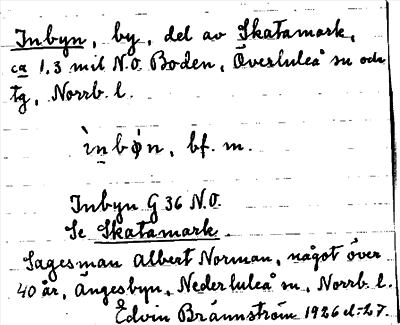 Inbyn, by, del av Skatamark,
ca 1,3 mil N.O. Boden, Överluleå sn och
tg, Norrb. l.
ìnbøn, bf. m.
Inbyn G 36 N.O.
Se Skatamark.
Sagesman Albert Norman, något över
40 år, Ängesbyn, Nederluleå sn, Norrb. l.
Edvin Brännström 1926 el. 27.